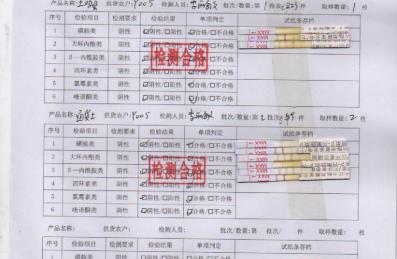 产品名称: 供货农户:Y005 检测人员: 批次/数量:第1批次/ 件 取样数量:1 枝
序号 检验项目 检测要求 检验结果 单项判定 试纸条存档
1 磺胺类 阴性 ☑阴性/□阳性 ☑合格/□不合格
2 大环内酯类 阴性 ☑阴性/□阳性 ☑合格/□不合格
3 β—内酰胺类 阴性 ☑阴性/□阳性 ☑合格/□不合格
4 四环素类 阴性 ☑阴性/□阳性 ☑合格/□不合格
5 氯霉素类 阴性 ☑阴性/□阳性 ☑合格/□不合格
6 喹诺酮类 阴性 ☑阴性/□阳性 ☑合格/□不合格
检测合格
产品名称: 供货农户:Y005 检测人员: 批次/数量:第2批次/ 件 取样数量:2 枝
序号 检验项目 检测要求 检验结果 单项判定 试纸条存档
1 磺胺类 阴性 ☑阴性/□阳性 ☑合格/□不合格
2 大环内酯类 阴性 ☑阴性/□阳性 ☑合格/□不合格
3 β—内酰胺类 阴性 ☑阴性/□阳性 ☑合格/□不合格
4 四环素类 阴性 ☑阴性/□阳性 ☑合格/□不合格
5 氯霉素类 阴性 ☑阴性/□阳性 ☑合格/□不合格
6 喹诺酮类 阴性 ☑阴性/□阳性 ☑合格/□不合格
检测合格
产品名称: 供货农户: 检测人员: 批次/数量:第 批次/ 件 取样数量: 枝
序号 检验项目 检测要求 检验结果 单项判定 试纸条存档
1 磺胺类 阴性 □阴性/□阳性 □合格/□不合格